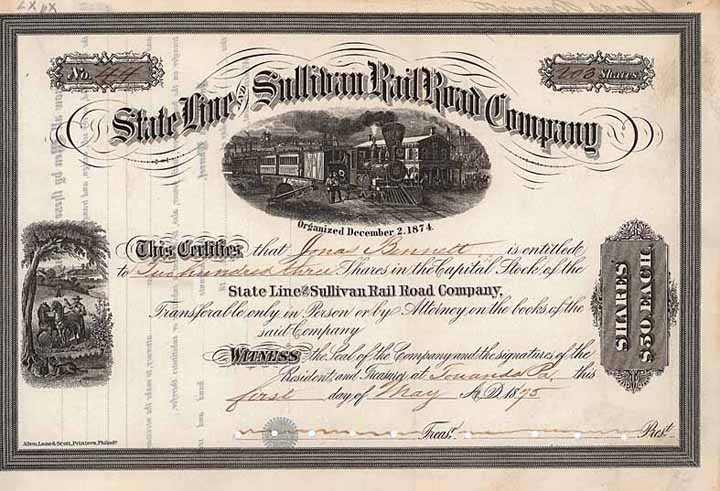 No. 44
203 Shares
State Line AND Sullivan Rail Road Company
Organized December 2. 1874.
This Certifies that Jonas Bennett is entitled
to Two hundred three Shares in the Capital Stock of the
State Line and Sullivan Rail Road Company,
Transferable only in Person or by Attorney on the books of the
said Company
Witness the Seal of the Company and the signatures of the
President, and Treasurer at Towanda Pa. this
first day of May A.D. 1875
Treasr. Prest.
SHARES
$50 EACH.
Allen, Lane & Scott, Printers, Philada.